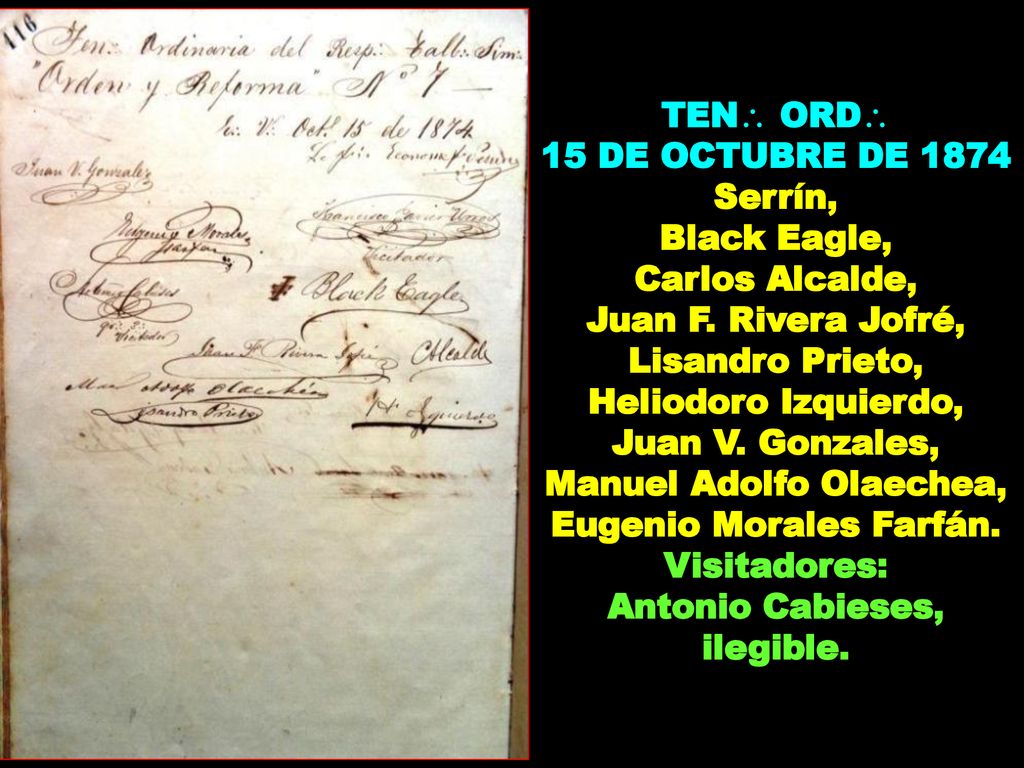 116
Ten∴ Ordinaria del Resp∴ Tall∴ Sim∴
"Orden y Reforma" Nº 7 —
E∴ V∴ Oct. 15 de 1874
Juan V. Gonzalez
Francisco Javier
Eugenio Morales
Farfan
Visitador
Antonio Cabieses
Black Eagle
Visitador
Juan F Rivera Jofré
CAlcalde
Man Adolfo Olaechéa
Lisandro Prieto
H Izquierdo
TEN∴ ORD∴
15 DE OCTUBRE DE 1874
Serrín,
Black Eagle,
Carlos Alcalde,
Juan F. Rivera Jofré,
Lisandro Prieto,
Heliodoro Izquierdo,
Juan V. Gonzales,
Manuel Adolfo Olaechea,
Eugenio Morales Farfán.
Visitadores:
Antonio Cabieses,
ilegible.